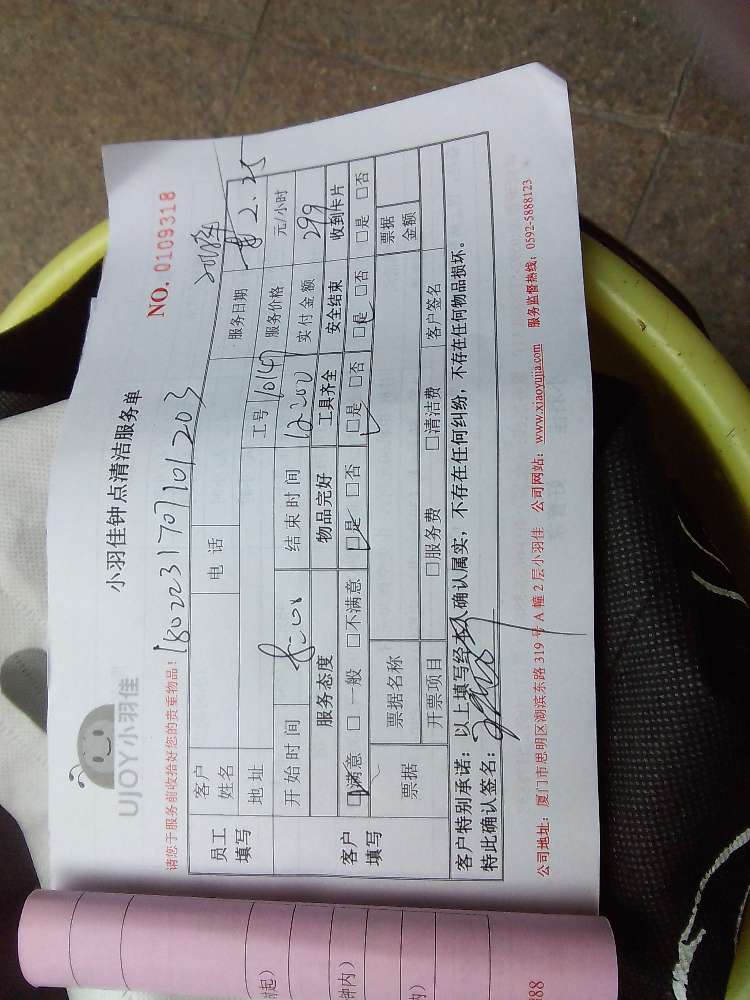 UJOY小羽佳
小羽佳钟点清洁服务单
NO. 0109318
请您于服务前收拾好您的贵重物品！
1802231701101203
员工填写
客户姓名
电话
服务日期
2.25
地址
工号
10147
服务价格
元/小时
开始时间
8:00
结束时间
12:00
实付金额
299
客户填写
服务态度
物品完好
工具齐全
安全结束
收到卡片
□满意 □一般 □不满意
□是 □否
□是 □否
□是 □否
□是 □否
票据
票据名称
票据金额
开票项目
□服务费 □清洁费
客户签名
客户特别承诺：以上填写经本人确认属实，不存在任何纠纷，不存在任何物品损坏。
特此确认签名：
公司地址：厦门市思明区湖滨东路 319 号 A 幢 2 层小羽佳 公司网站：www.xiaoyujia.com 服务监督热线：0592-5888123
时起）
钟内）
内）
888